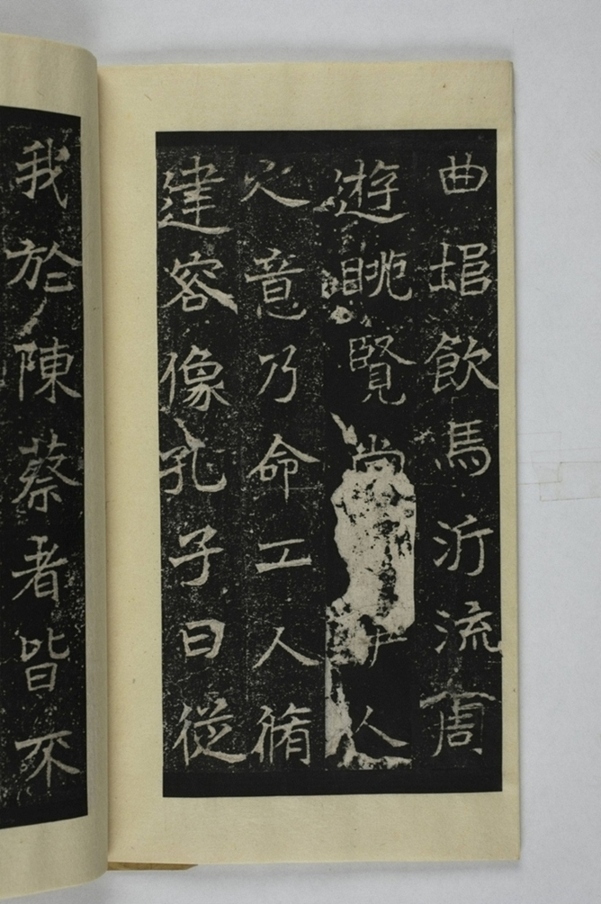 曲飲馬沂流周
遊眺覽尚人
之意乃命工人脩
建容像孔子曰從
我於陳蔡者皆不